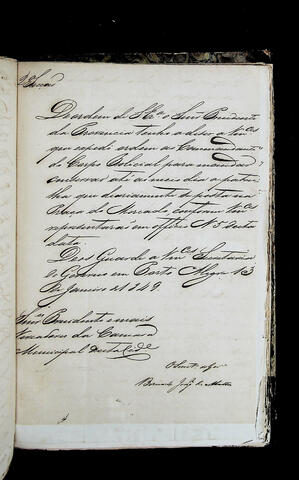 De ordem de S. Exª o Senr Presidente
da Provincia tenho a dizer a Vm.ces
que expede ordem ao Commandante
do Corpo Policial para mandar
conservar até ao meio dia a patru
lha que diariamente se posta na
Praça do Mercado, conforme Vm.ces
reprezentarão em officio Nº 5 desta
data.
Deos Guarde a Vm.ces Secretaria
do Governo em Porto Alegre 13
de Janeiro de 1849.
Senres Presidente e mais
Vereadores da Camara
Municipal desta Cid.e